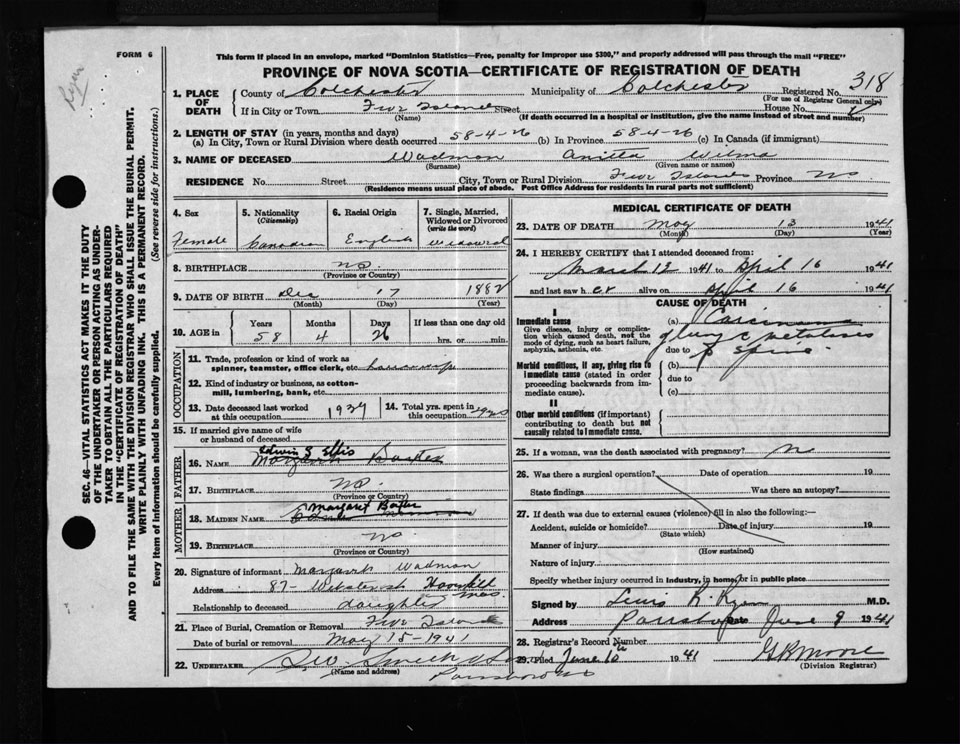 FORM 6
Ryan
This form if placed in an envelope, marked "Dominion Statistics—Free, penalty for improper use $300," and properly addressed will pass through the mail "FREE"
PROVINCE OF NOVA SCOTIA—CERTIFICATE OF REGISTRATION OF DEATH
318
1. PLACE OF DEATH
County of Colchester Municipality of Colchester Registered No.
(For use of Registrar General only)
If in City or Town Five Islands Street House No.
(Name) (If death occurred in a hospital or institution, give the name instead of street and number)
2. LENGTH OF STAY (in years, months and days)
(a) In City, Town or Rural Division where death occurred 58-4-26 (b) In Province 58-4-26 (c) In Canada (if immigrant)
3. NAME OF DECEASED Wadman Wilma
(Surname) (Given name or names)
RESIDENCE No. Street City, Town or Rural Division Five Islands Province NS
(Residence means usual place of abode. Post Office Address for residents in rural parts not sufficient)
4. Sex 5. Nationality (Citizenship) 6. Racial Origin 7. Single, Married, Widowed or Divorced (write the word)
Female Canadian English Widowed
8. BIRTHPLACE NS.
(Province or Country)
9. DATE OF BIRTH Dec 17 1882
(Month) (Day) (Year)
10. AGE in Years Months Days If less than one day old
58 4 26 hrs. or min.
OCCUPATION
11. Trade, profession or kind of work as spinner, teamster, office clerk, etc. housewife
12. Kind of industry or business, as cotton-mill, lumbering, bank, etc.
13. Date deceased last worked at this occupation 1939 14. Total yrs. spent in this occupation
15. If married give name of wife or husband of deceased
FATHER
Edwin S Ellis
16. NAME Margaret Baxter
17. BIRTHPLACE NS.
(Province or Country)
MOTHER
Margaret Baxter
18. MAIDEN NAME
19. BIRTHPLACE NS
(Province or Country)
20. Signature of informant Margaret Wadman
Address 87 Haverhill Mas.
Relationship to deceased daughter
21. Place of Burial, Cremation or Removal Five Islands
Date of burial or removal May 15-1941
22. UNDERTAKER Smith
(Name and address) Parrsboro NS
MEDICAL CERTIFICATE OF DEATH
23. DATE OF DEATH May 13 1941
(Month) (Day) (Year)
24. I HEREBY CERTIFY that I attended deceased from:
March 12 1941 to April 16 1941
and last saw h er alive on April 16 1941
CAUSE OF DEATH
I
Immediate cause
Give disease, injury or complication which caused death, not the mode of dying, such as heart failure, asphyxia, asthenia, etc.
(a) Carcinoma
of lung c metastases
due to to Spine
Morbid conditions, if any, giving rise to immediate cause (stated in order proceeding backwards from immediate cause).
(b)
due to
(c)
II
Other morbid conditions (if important) contributing to death but not causally related to immediate cause.
25. If a woman, was the death associated with pregnancy? No
26. Was there a surgical operation? Date of operation 19
State findings Was there an autopsy?
27. If death was due to external causes (violence) fill in also the following:—
Accident, suicide or homicide? Date of injury 19
(State which)
Manner of injury
(How sustained)
Nature of injury
Specify whether injury occurred in industry, in home, or in public place
Signed by R. Ryan M.D.
Address Parrsboro Date June 9 1941
28. Registrar's Record Number
29. Filed June 10th 1941 G R Moore
(Division Registrar)
SEC. 46—VITAL STATISTICS ACT MAKES IT THE DUTY
OF THE UNDERTAKER OR PERSON ACTING AS UNDER-
TAKER TO OBTAIN ALL THE PARTICULARS REQUIRED
IN THE "CERTIFICATE OF REGISTRATION OF DEATH"
AND TO FILE THE SAME WITH THE DIVISION REGISTRAR WHO SHALL ISSUE THE BURIAL PERMIT.
WRITE PLAINLY WITH UNFADING INK. THIS IS A PERMANENT RECORD.
Every item of information should be carefully supplied. (See reverse side for instructions.)